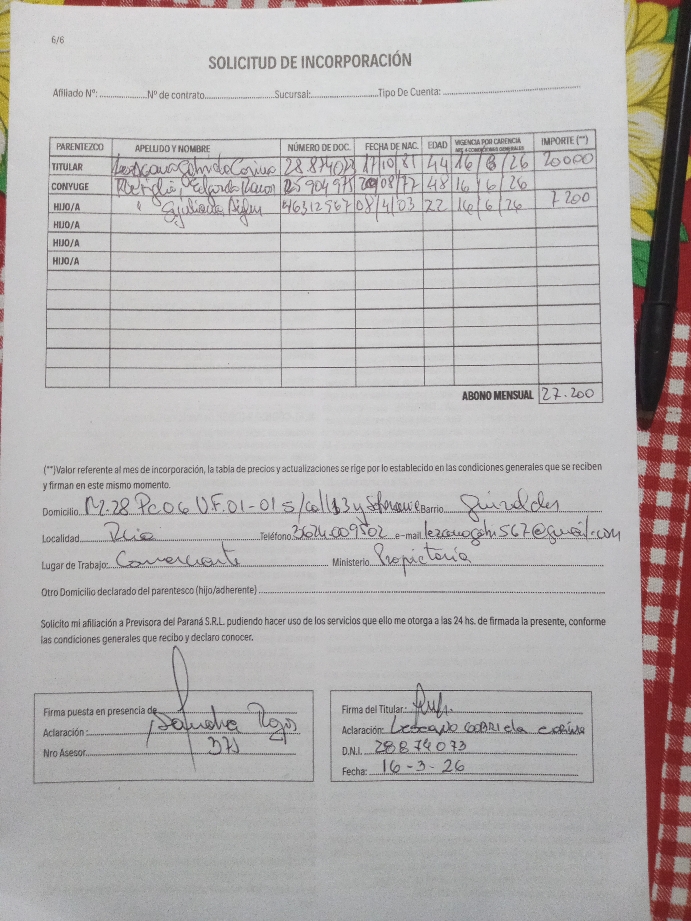 6/6
SOLICITUD DE INCORPORACIÓN
Afiliado Nº: Nº de contrato Sucursal: Tipo De Cuenta:
PARENTEZCO APELLIDO Y NOMBRE NÚMERO DE DOC. FECHA DE NAC. EDAD VIGENCIA POR CARENCIA IMPORTE (**)
TITULAR Corina 28.874073 17/10/81 44 16/ /26 20000
CONYUGE Ramon 25904975 08/77 48 16/6/26
HIJO/A " 46312567 08/4/03 22 16/6/26 7200
HIJO/A
HIJO/A
HIJO/A
ABONO MENSUAL 27.200
(**)Valor referente al mes de incorporación, la tabla de precios y actualizaciones se rige por lo establecido en las condiciones generales que se reciben
y firman en este mismo momento.
Domicilio M.28 Pc06 UF.01-01 s/call 13 y Barrio
Localidad Rcia Teléfono 3624009502 e-mail
Lugar de Trabajo: Comerciante Ministerio Propietaria
Otro Domicilio declarado del parentesco (hijo/adherente)
Solicito mi afiliación a Previsora del Paraná S.R.L. pudiendo hacer uso de los servicios que ello me otorga a las 24 hs. de firmada la presente, conforme
las condiciones generales que recibo y declaro conocer.
Firma puesta en presencia de
Aclaración:
Nro Asesor 375
Firma del Titular:
Aclaración: Lezcano GABRIela CORINA
D.N.I. 28874073
Fecha: 16-3-26